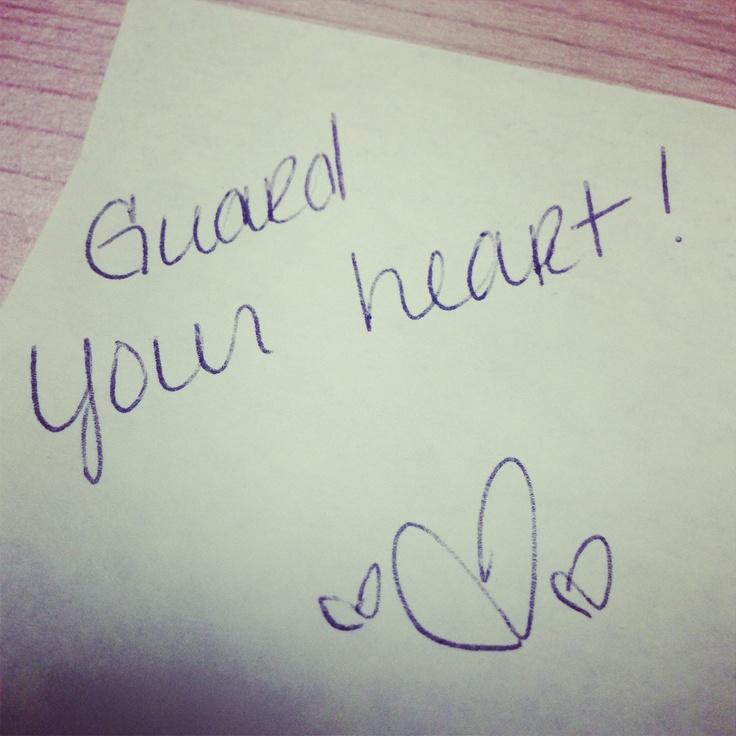 Guard
your heart!